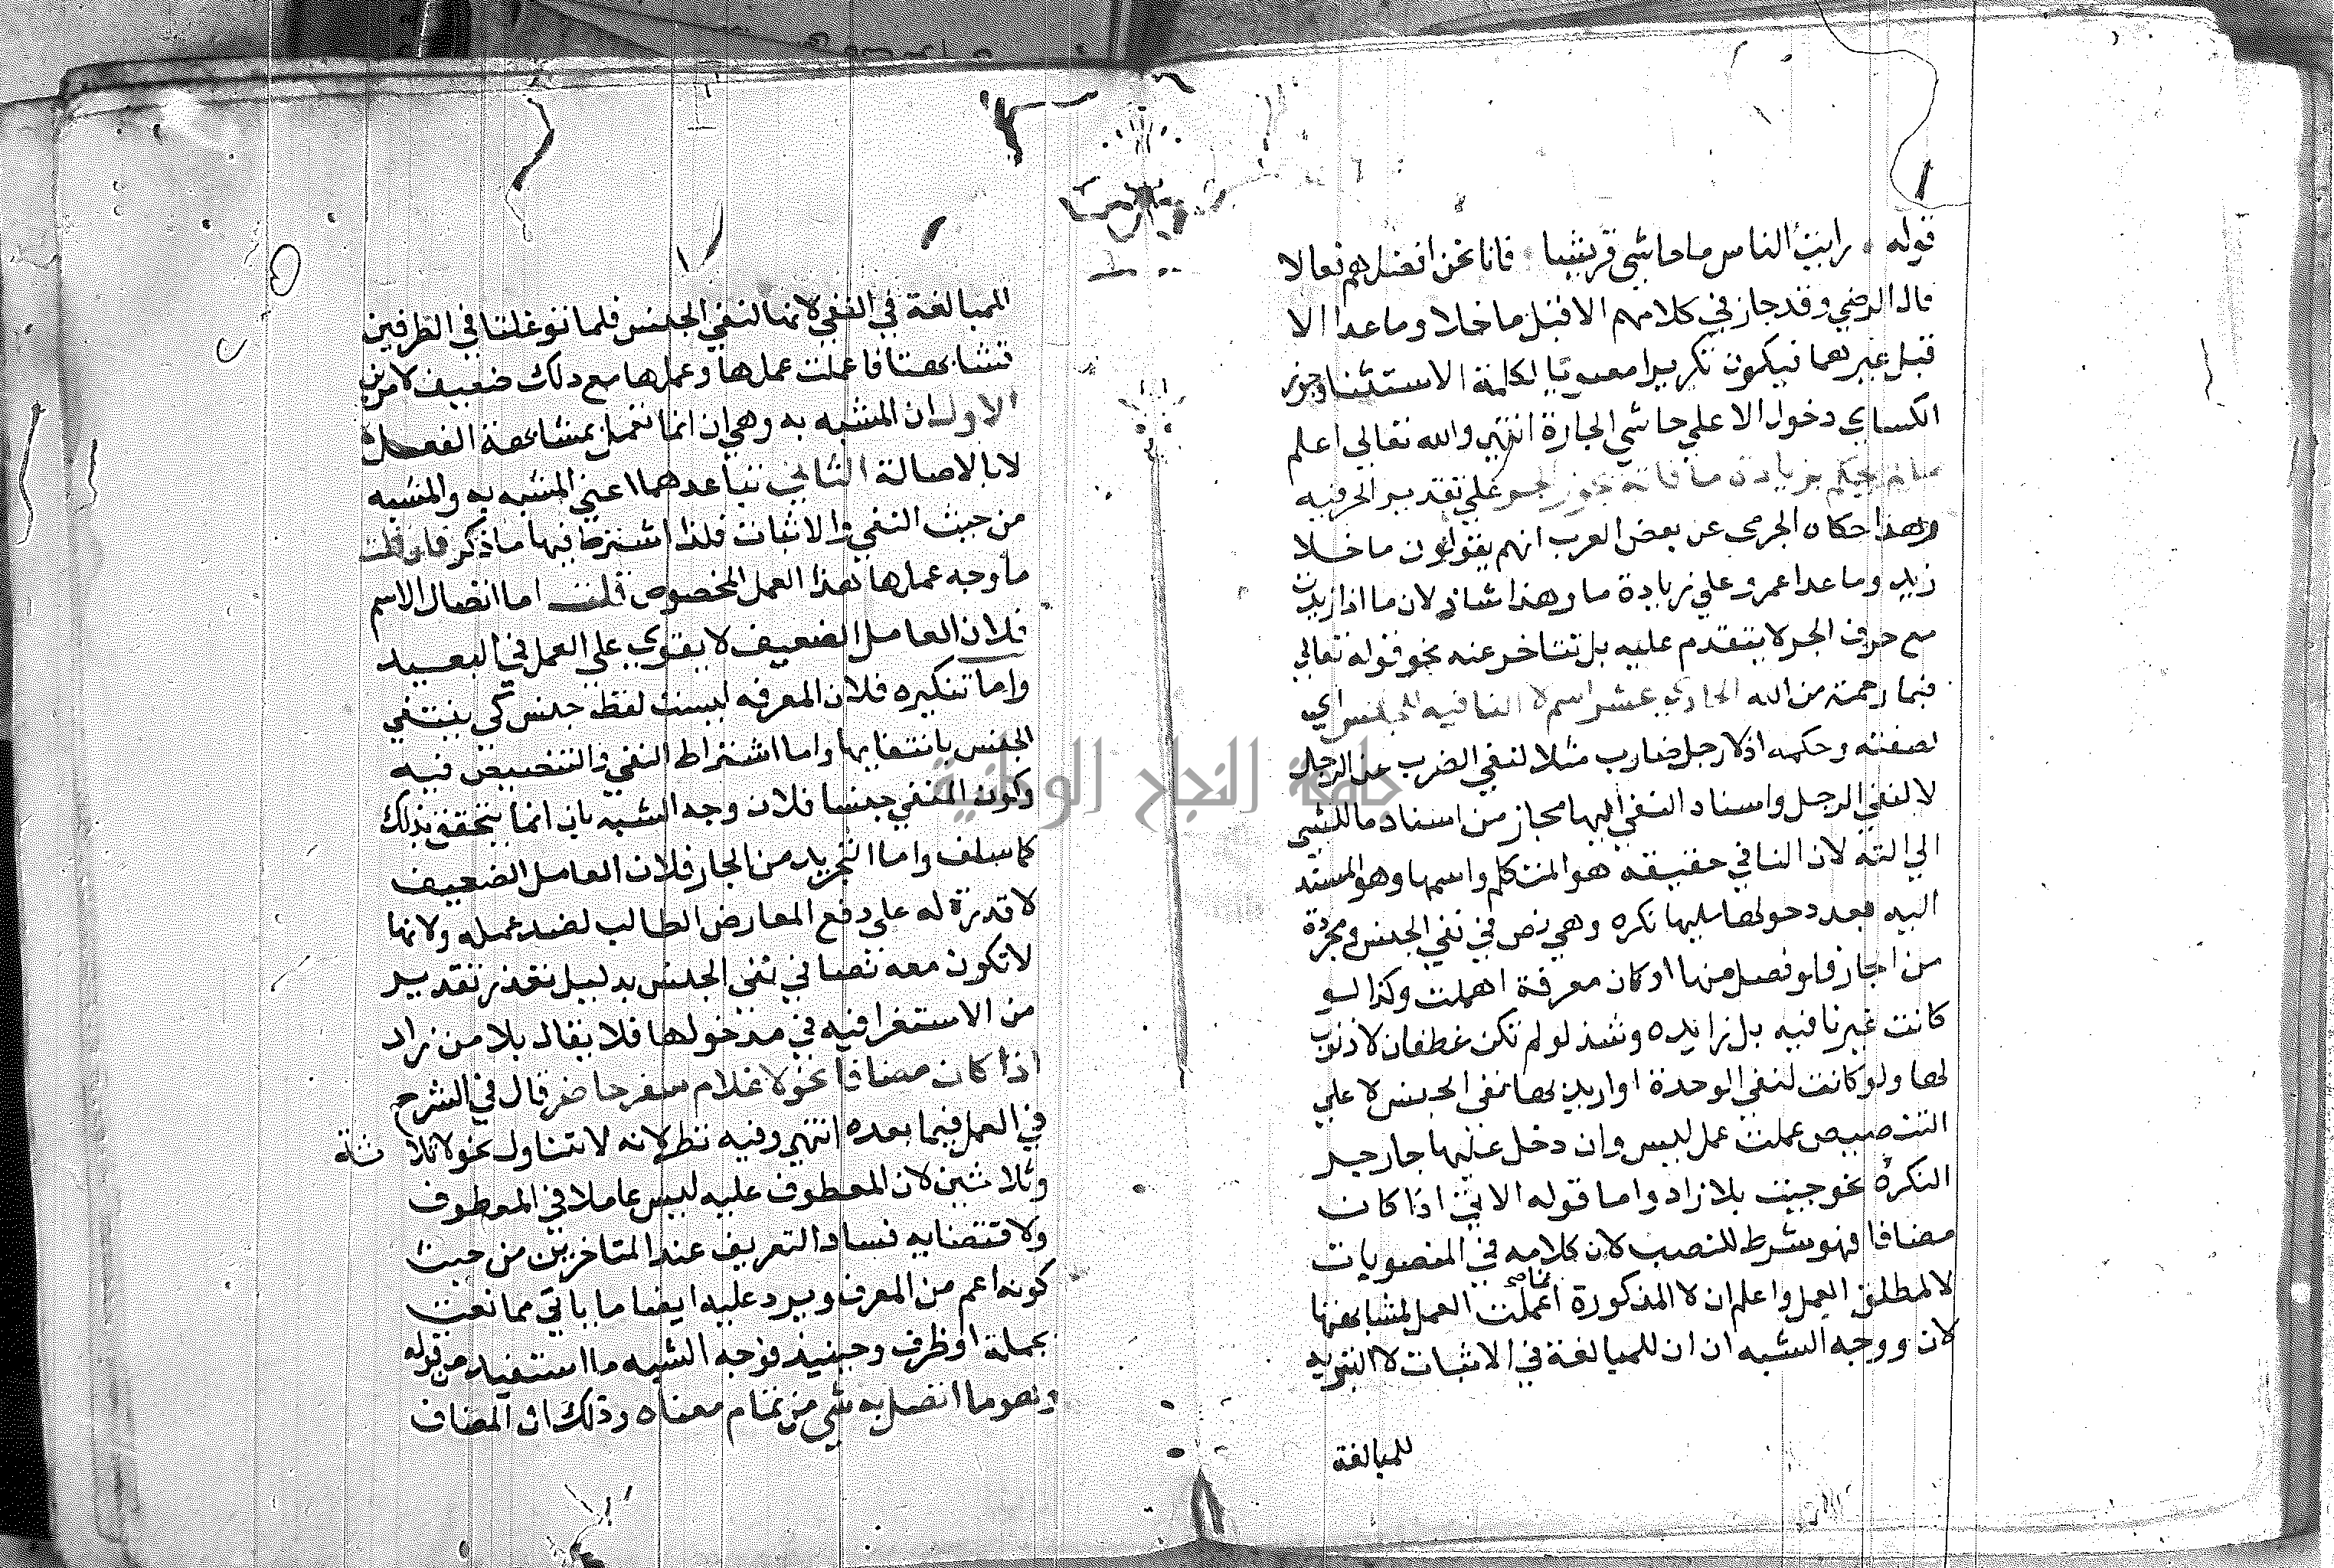 قوله رايت الناس ما حاشي قريشا فانا نحن افضلهم فعالا
قال الرضي وقد جاز في كلامهم الا قبل ما خلا وما عدا الا
قبل غيرهما فيكون تكريرا معنويا لكلمة الاستثنا وجوز
الكساي دخول الا علي حاشي الجارة انتهي والله تعالي اعلم
بزيادة ما فانه علي تقدير الحرفيه
وهذا حكاه الجرمي عن بعض العرب انهم يقولون ما خلا
زيد وما عدا عمرو علي زيادة ما وهذا شاذ لان ما اذا زيدت
مع حرف الجر لا يتقدم عليه بل تتاخر عنه نحو قوله تعالي
فبما رحمة من الله الحادي عشر اسم لا النافيه للجنس اي
لصفته وحكمه اذ لا رجل ضارب مثلا لنفي الضرب عن الرجل
لا لنفي الرجل واسناد النفي اليها مجاز من اسناد ما للشي
الي الته لان النافي حقيقه هو المتكلم واسمها وهو المسند
اليه بعد دخولها يليها نكره وهي نص في نفي الجنس ومجردة
من الجار فلو فصل منها او كان معرفة اهملت وكذا لو
كانت غير نافيه بل زايده وشذ لو لم تكن غطفان لا ذنوب
لها ولو كانت لنفي الوحدة او اريد بها نفي الجنس لا علي
التنصيص عملت عمل ليس وان دخل عليها جار جر
النكرة نحو جيت بلا زاد واما قوله الاتي اذا كان
مضافا فهو شرط للنصب لان كلامه في المنصوبات
لا لمطلق العمل واعلم ان لا المذكورة انما اعملت العمل لمشابهتها
لان ووجه الشبه ان ان للمبالغة في الاثبات لا التبريه
للمبالغة
المبالغة في النفي لانها لنفي الجنس فلما توغلتا في الطرفين
تشابهتا فاعملت عملها وعملها مع ذلك ضعيف لامرين
الاول ان المشبه به وهي ان انما تعمل بمشابهة الفعل
لا بالاصالة الثاني تباعدهما اعني المشبه به والمشبه
من حيث النفي والاثبات فلذا اشترط فيها ما ذكر فان قلت
ما وجه عملها بهذا العمل المخصوص قلت اما اتصال الاسم
فلان العامل الضعيف لا يقوي علي العمل في البعيد
واما تنكيره فلان المعرفه ليست لفظ جنس كي ينتفي
الجنس بانتفايها واما اشتراط النفي والتنصيص فيه
وكون المنفي جنسا فلان وجه الشبه بان انما يتحقق بذلك
كما سلف واما التجريد من الجار فلان العامل الضعيف
لا قدرة له علي دفع المعارض الطالب لضد عمله ولانها
لا تكون معه نصا في نفي الجنس بدليل تعذر تقدير
من الاستغرافيه في مدخولها فلا يقال بلا من زاد
اذا كان مضافا نحو لا غلام سفر حاضر قال في الشرح
في العمل فيما بعده انتهي وفيه نظر لانه لا يتناول نحو لا ثلاثة
وثلاثين لان المعطوف عليه ليس عاملا في المعطوف
ولاقتضايه فساد التعريف عند المتاخرين من حيث
كونه اعم من المعرف ويرد عليه ايضا ما ياتي مما نعت
بجملة او ظرف وحينيذ فوجه الشبه ما استفيد من قوله
وهو ما اتصل به شي من تمام معناه وذلك ان المضاف
جامعة النجاح الوطنية